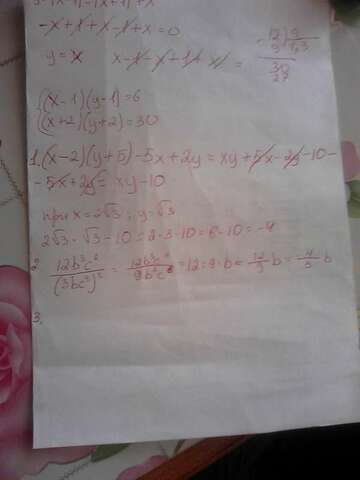 -x+x+x-x+x=0
y=x x-x-x+1+x/ =
12 | 9
9 1,3
30
27
{(x-1)(y-1)=6
(x+2)(y+2)=30
1. (x-2)(y+5)-5x+2y=xy+5x-2y-10-
-5x+2y=xy-10
при x=2√3; y=√3
2√3·√3-10=2·3-10=6-10=-4
2. 12b³c⁶/(3bc³)² = 12b³c⁶/9b²c⁶ =12:9·b=12/9 b=4/3 b
3.